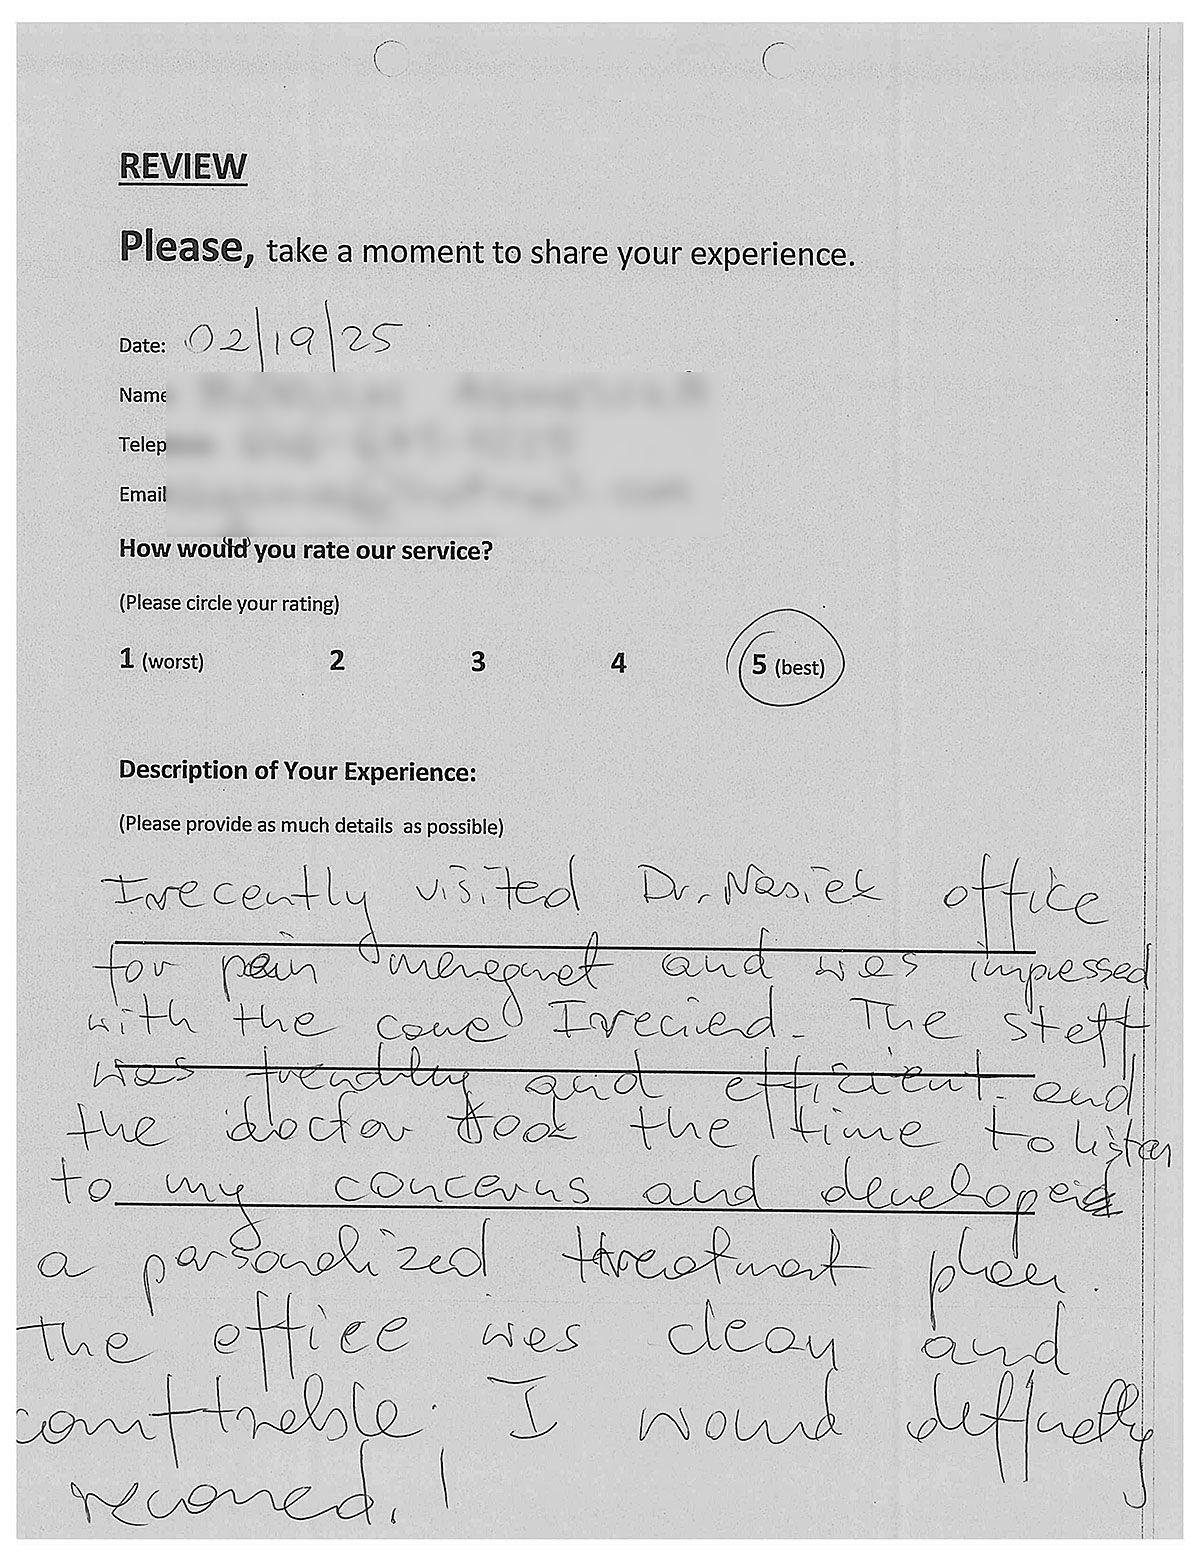 REVIEW
Please, take a moment to share your experience.
Date: 02/19/25
Name
Telep
Email
How would you rate our service?
(Please circle your rating)
1 (worst) 2 3 4 5 (best)
Description of Your Experience:
(Please provide as much details as possible)
I recently visited Dr. Nasiek office
for pain and was impressed
with the I The staff
was and efficient. and
the doctor took the time to listen
to my concerns and developed
a personalized treatment plan.
The office was clean and
I